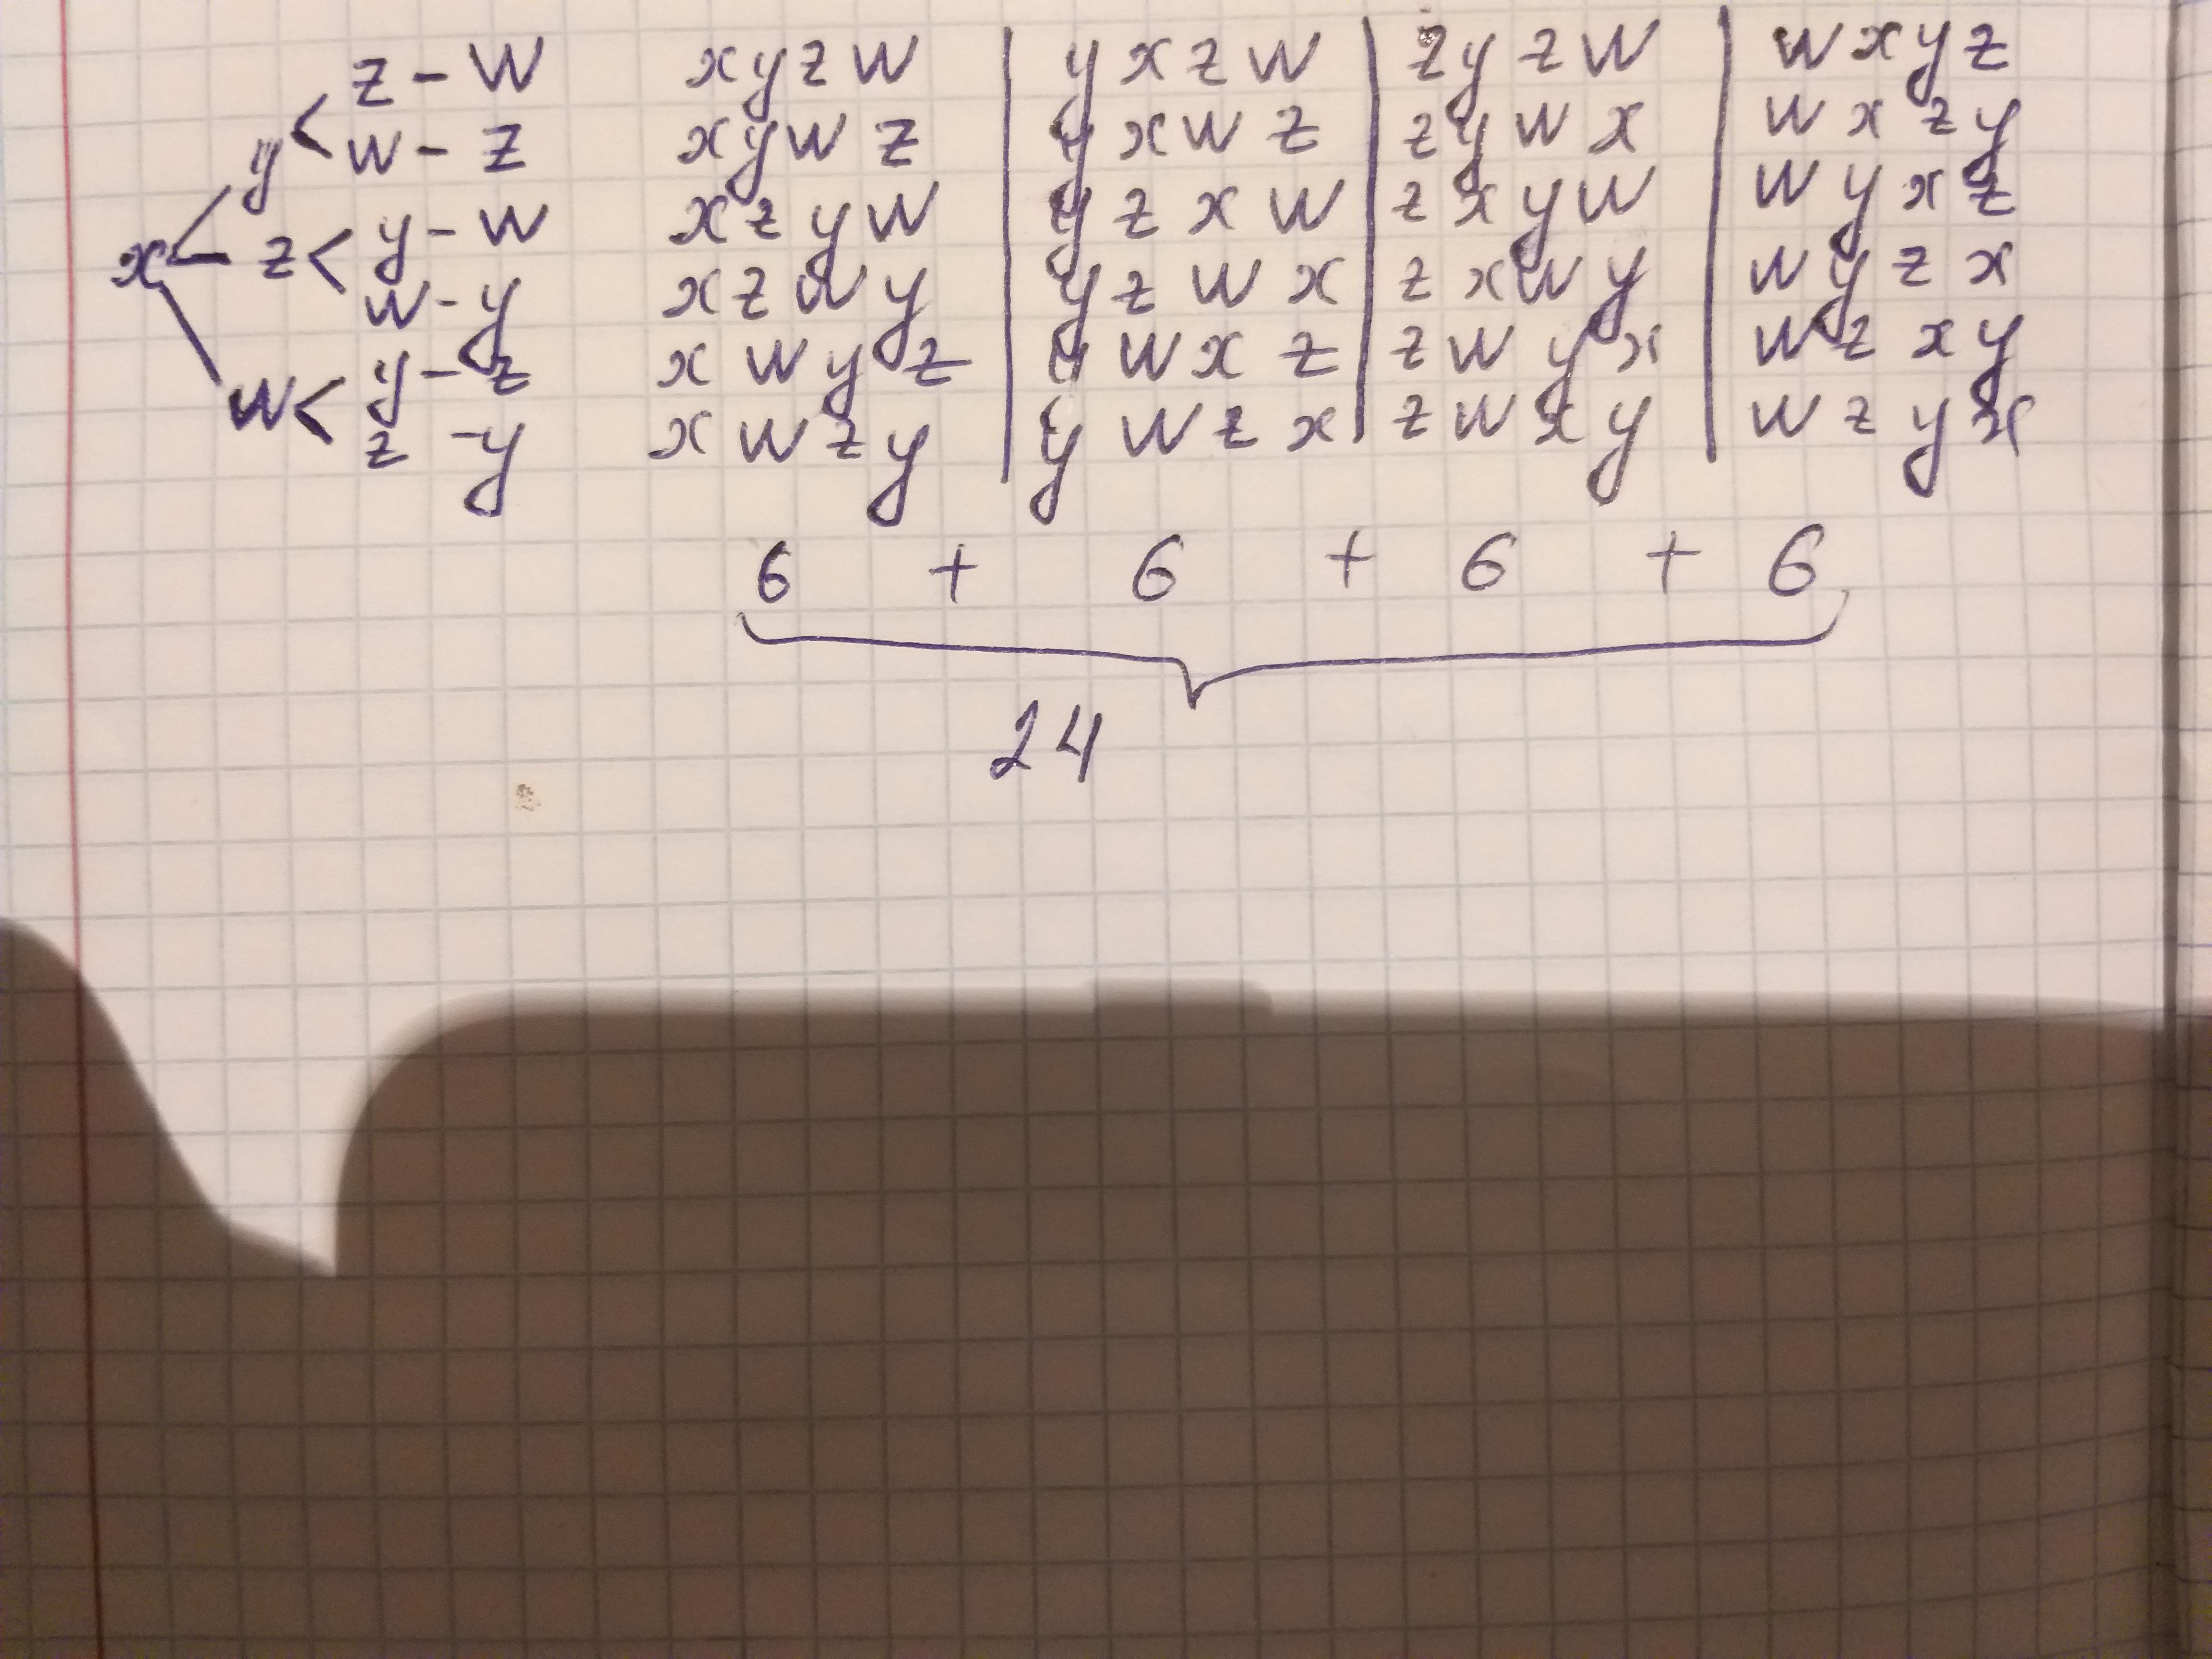 z - w xyzw | yxzw | zyzw | wxyz
y < w - z xywz | yxwz | zywx | wxzy
x z < y - w xzyw | yzxw | zxyw | wyxz
w - y xzwy | yzwx | zxwy | wyzx
w < y - z xwyz | ywxz | zwyx | wzxy
z - y xwzy | ywzx | zwxy | wzyx
6 + 6 + 6 + 6
24